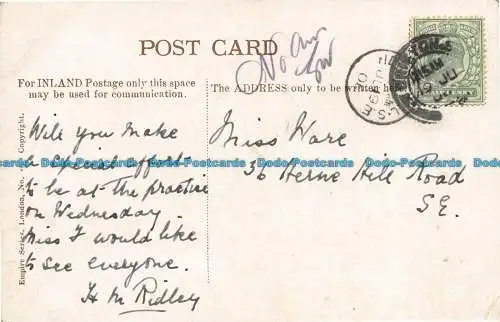 POST CARD
No an
For INLAND Postage only this space
may be used for communication.
The ADDRESS only to be written here
Empire Series, London, No. Copyright.
Will you make
a special effort
to be at the practise
on Wednesday
Miss F would like
to see everyone.
H M Ridley
Miss Ware
36 Herne Hill Road
S.E.
Dodo-Postcards Dodo-Postcards Dodo-Postcards Dodo-Postcards Dodo-Postcards
Dodo-Postcards Dodo-Postcards Dodo-Postcards Dodo-Postcards Dodo-Postcards